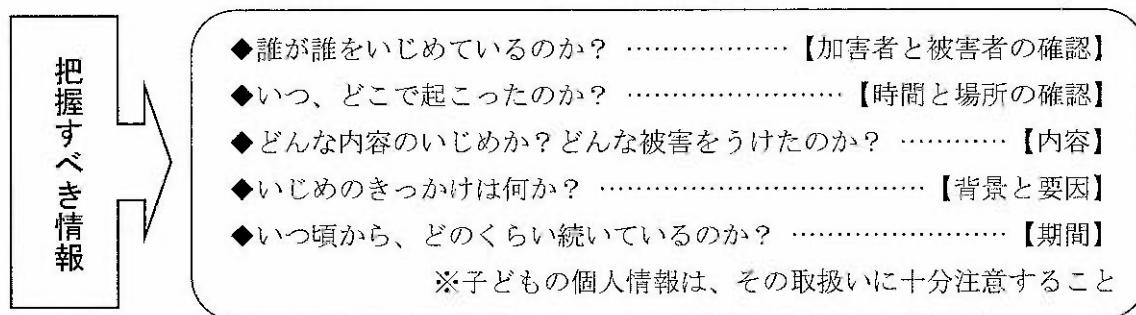 把握すべき情報
◆誰が誰をいじめているのか？ ………………【加害者と被害者の確認】
◆いつ、どこで起こったのか？ ……………………【時間と場所の確認】
◆どんな内容のいじめか？どんな被害をうけたのか？ …………【内容】
◆いじめのきっかけは何か？ ……………………………【背景と要因】
◆いつ頃から、どのくらい続いているのか？ ……………………【期間】
※子どもの個人情報は、その取扱いに十分注意すること